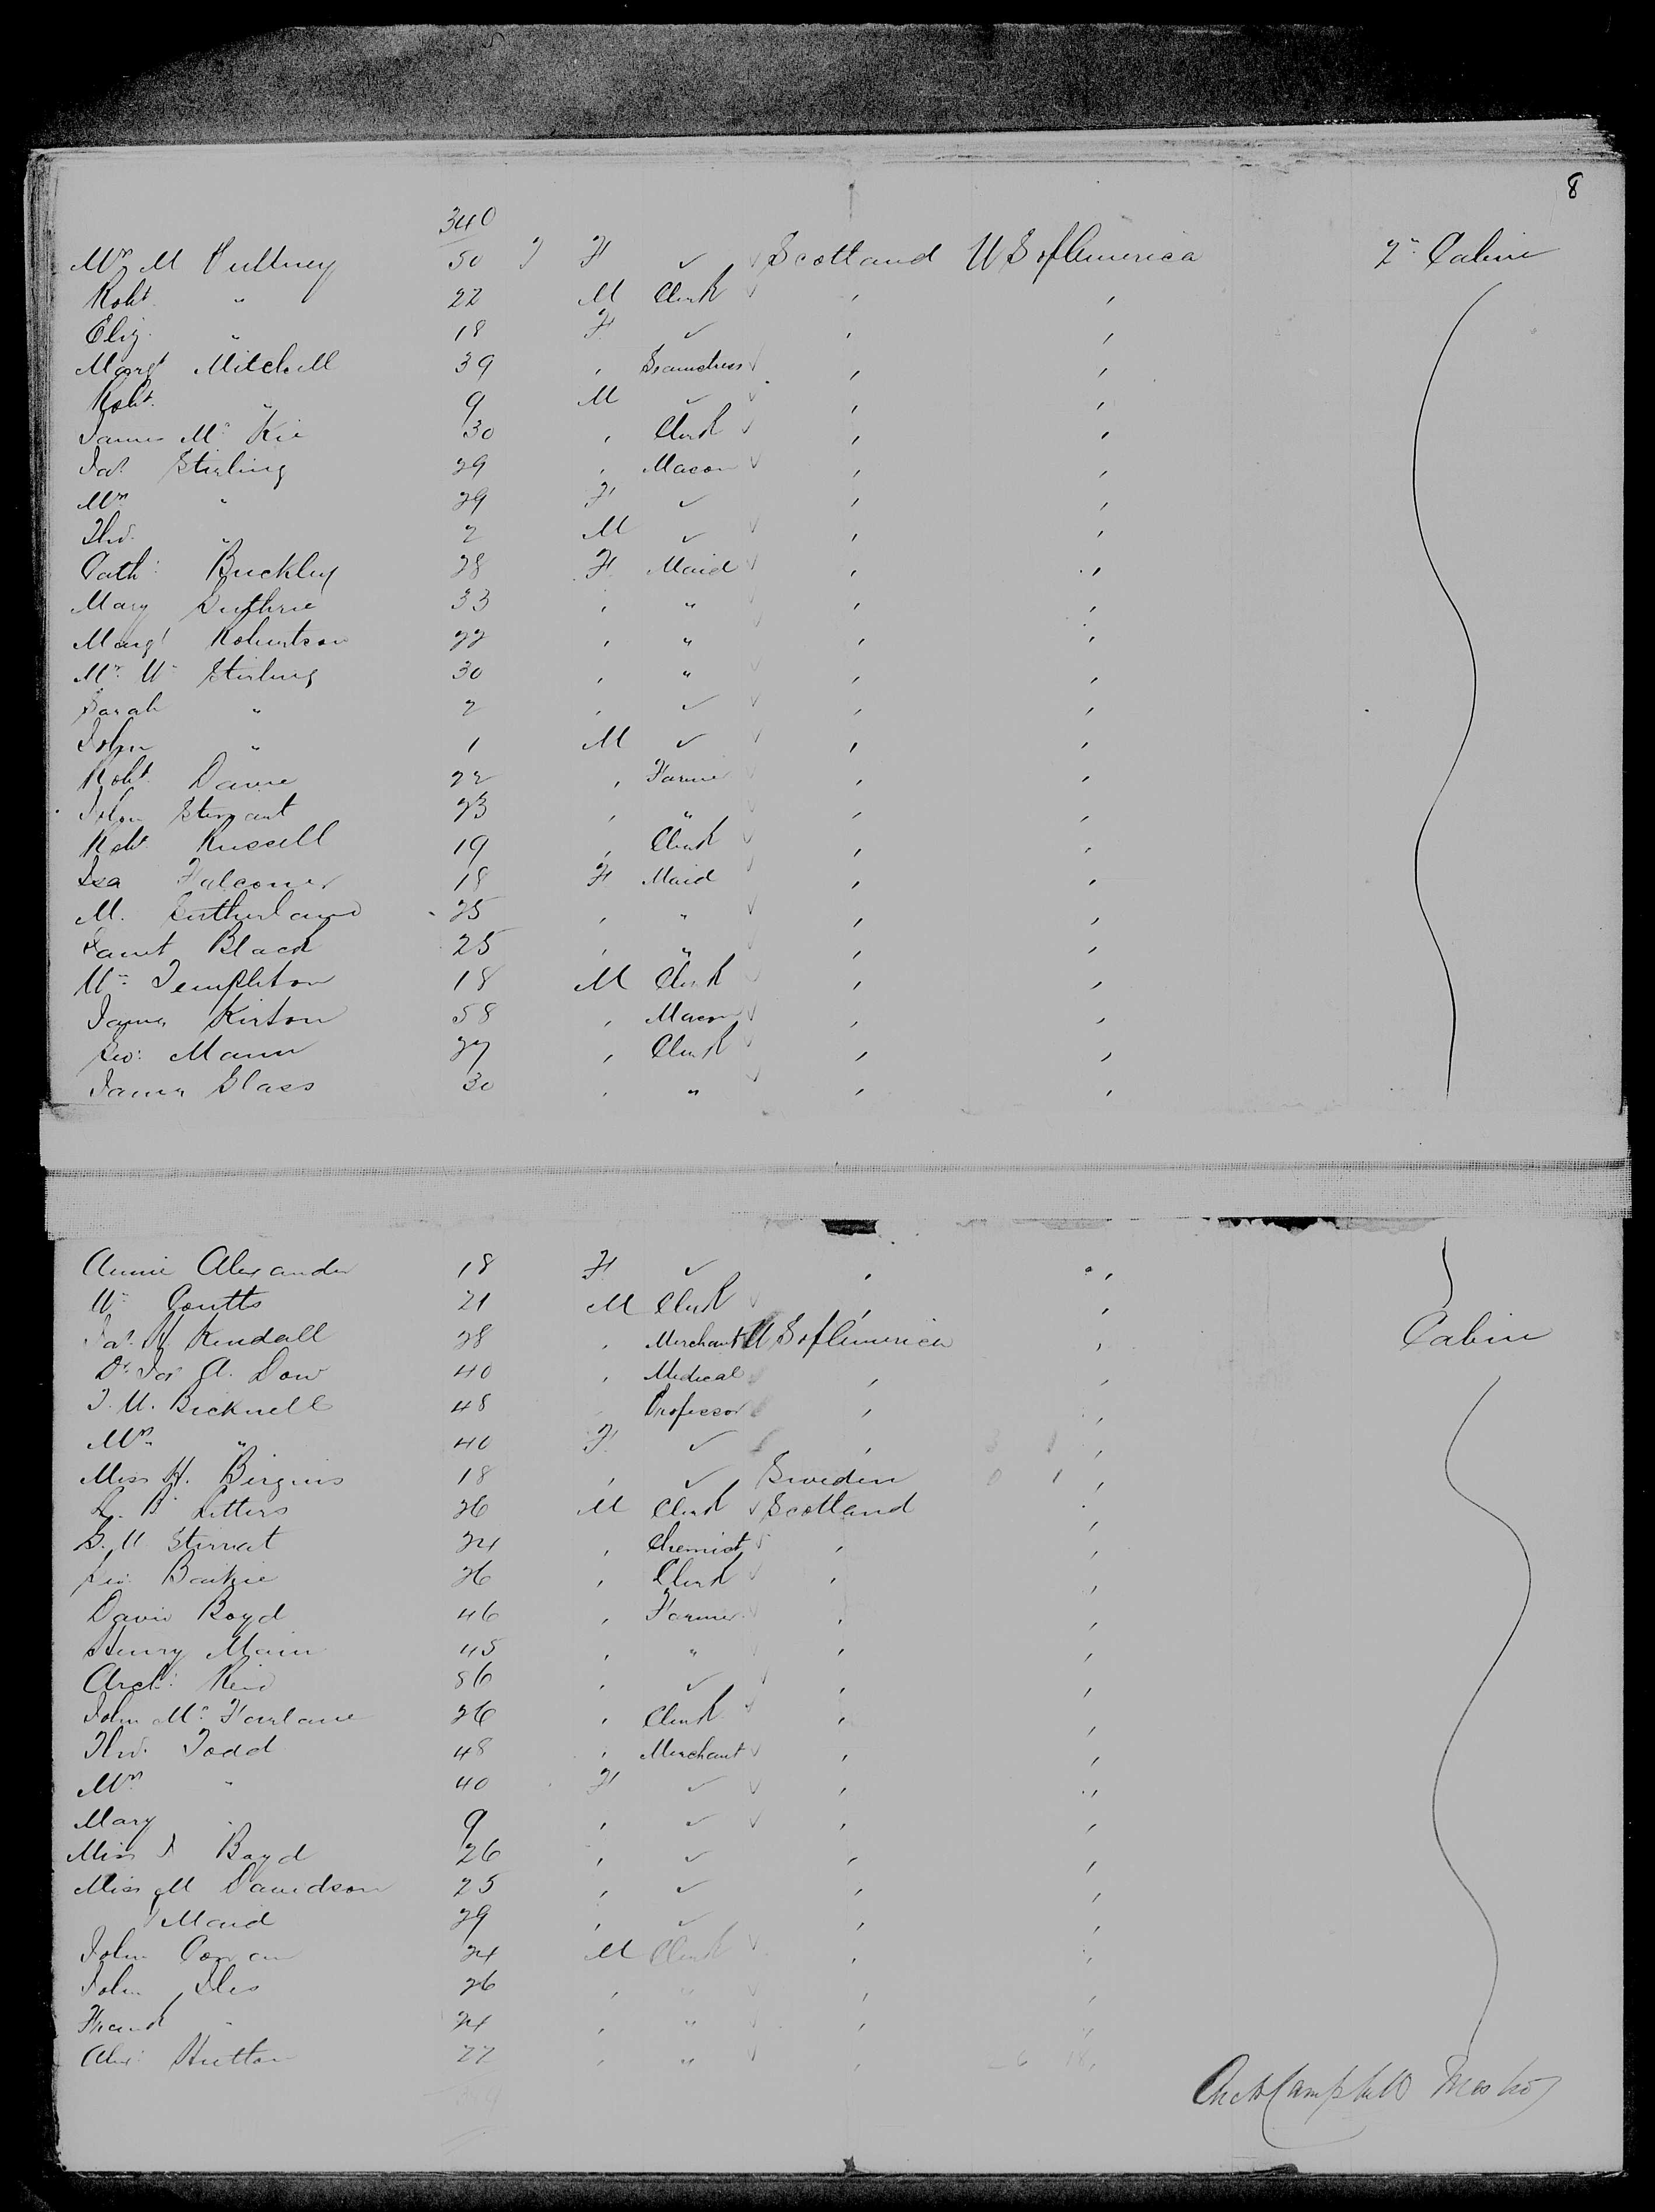 8
340
Mrs M Pultney 50 F ✓ Scotland U S of America 2nd Cabin
Robt " 22 M Clerk
Eliz. " 18 F ✓
Margt Mitchell 39 , Seamstress
Robt. " 9 M ✓
James Mc Kie 30 , Clerk
Jas. Stirling 29 , Mason
Mrs " 29 F ✓
Thos. " 2 M ✓
Cath: Buckley 28 F Maid
Mary Duthrie 33 , "
Margt Robertson 22 , "
Mrs Wm Stirling 30 , "
Sarah " 2 , ✓
John " 1 M ✓
Robt. 22 , Farmer
John Stewart 23 , "
Robt. Russell 19 , Clerk
Isa Falconer 18 F Maid
M. Sutherland 25 , "
Janet Black 25 , "
Wm Templeton 18 M Clerk
James Kirton 58 , Mason
Geo: Mann 27 , Clerk
James Glass 30 , "
Annie Alexander 18 F ✓
Wm Coutts 21 M Clerk
Jas. Kendall 28 , Merchant U S of America Cabin
Dr. Jas A. Dow 40 , Medical
T. W. Bicknell 48 Professor
Mrs. " 40 F ✓
Miss H. 18 , ✓ Sweden
26 M Clerk Scotland
Stirrat 24 , Chemist
Geo. Baikie 26 , Clerk
David Boyd 46 , Farmer
Henry Main 45 , "
Arch: Reid 56 , ✓
John Mc Farlane 26 , Clerk
Thos. Todd 48 , Merchant
Mrs " 40 F ✓
Mary " 9 , ✓
Miss J Boyd 26 , ✓
Miss M Davidson 25 , ✓
Maid 29 , ✓
John Cowan 24 M Clerk
John Iles 26 , "
Frank " 24 , "
Alex: Hutton 22 , "
Arch Campbell Master